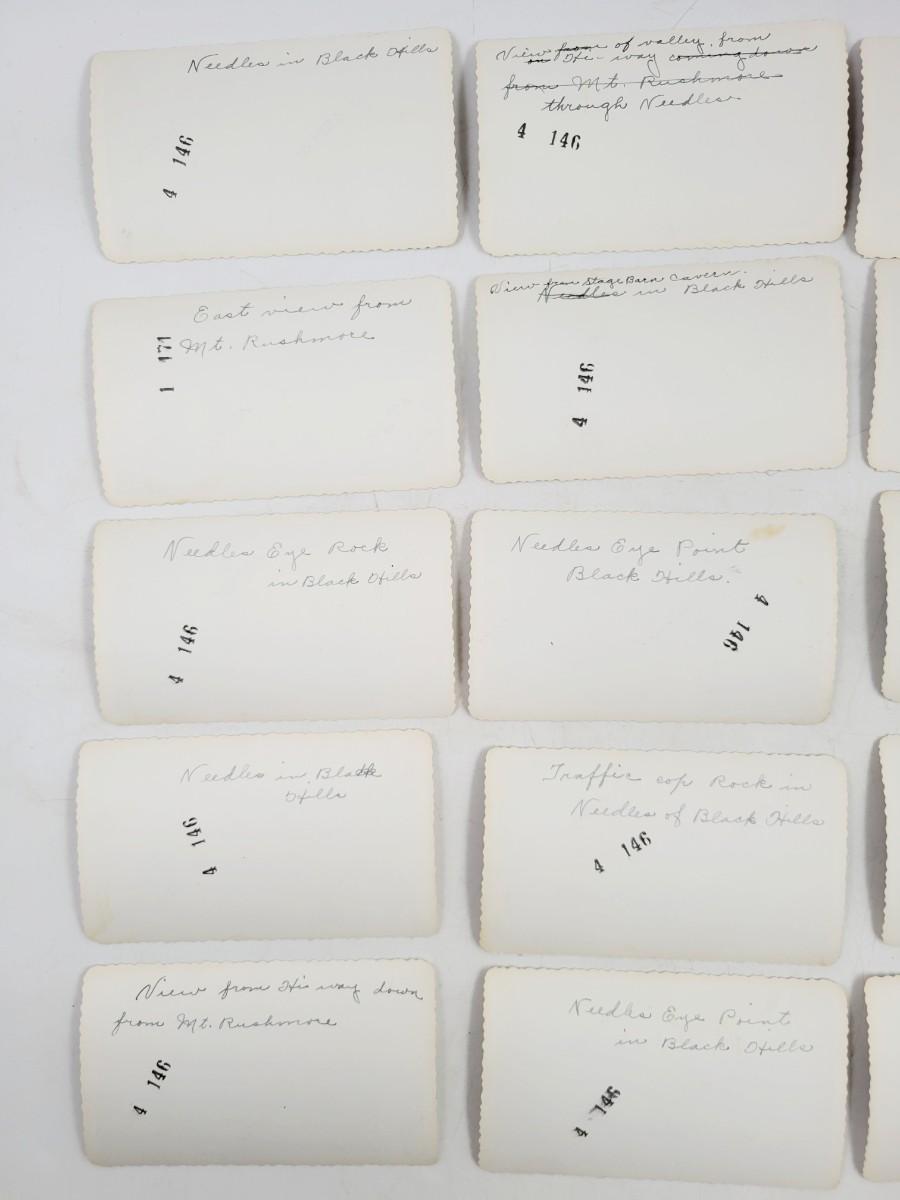 Needles in Black Hills
4 146
View from of valley from
on Hi-way coming down
from Mt. Rushmore
through Needles.
4 146
East view from
Mt. Rushmore
1 171
View from Stage Barn Cavern.
Needles in Black Hills
4 146
Needles Eye Rock
in Black Hills
4 146
Needles Eye Point
Black Hills.
4 146
Needles in Black
Hills
4 146
Traffic cop Rock in
Needles of Black Hills
4 146
View from Hi way down
from Mt. Rushmore
4 146
Needles Eye Point
in Black Hills
4 146